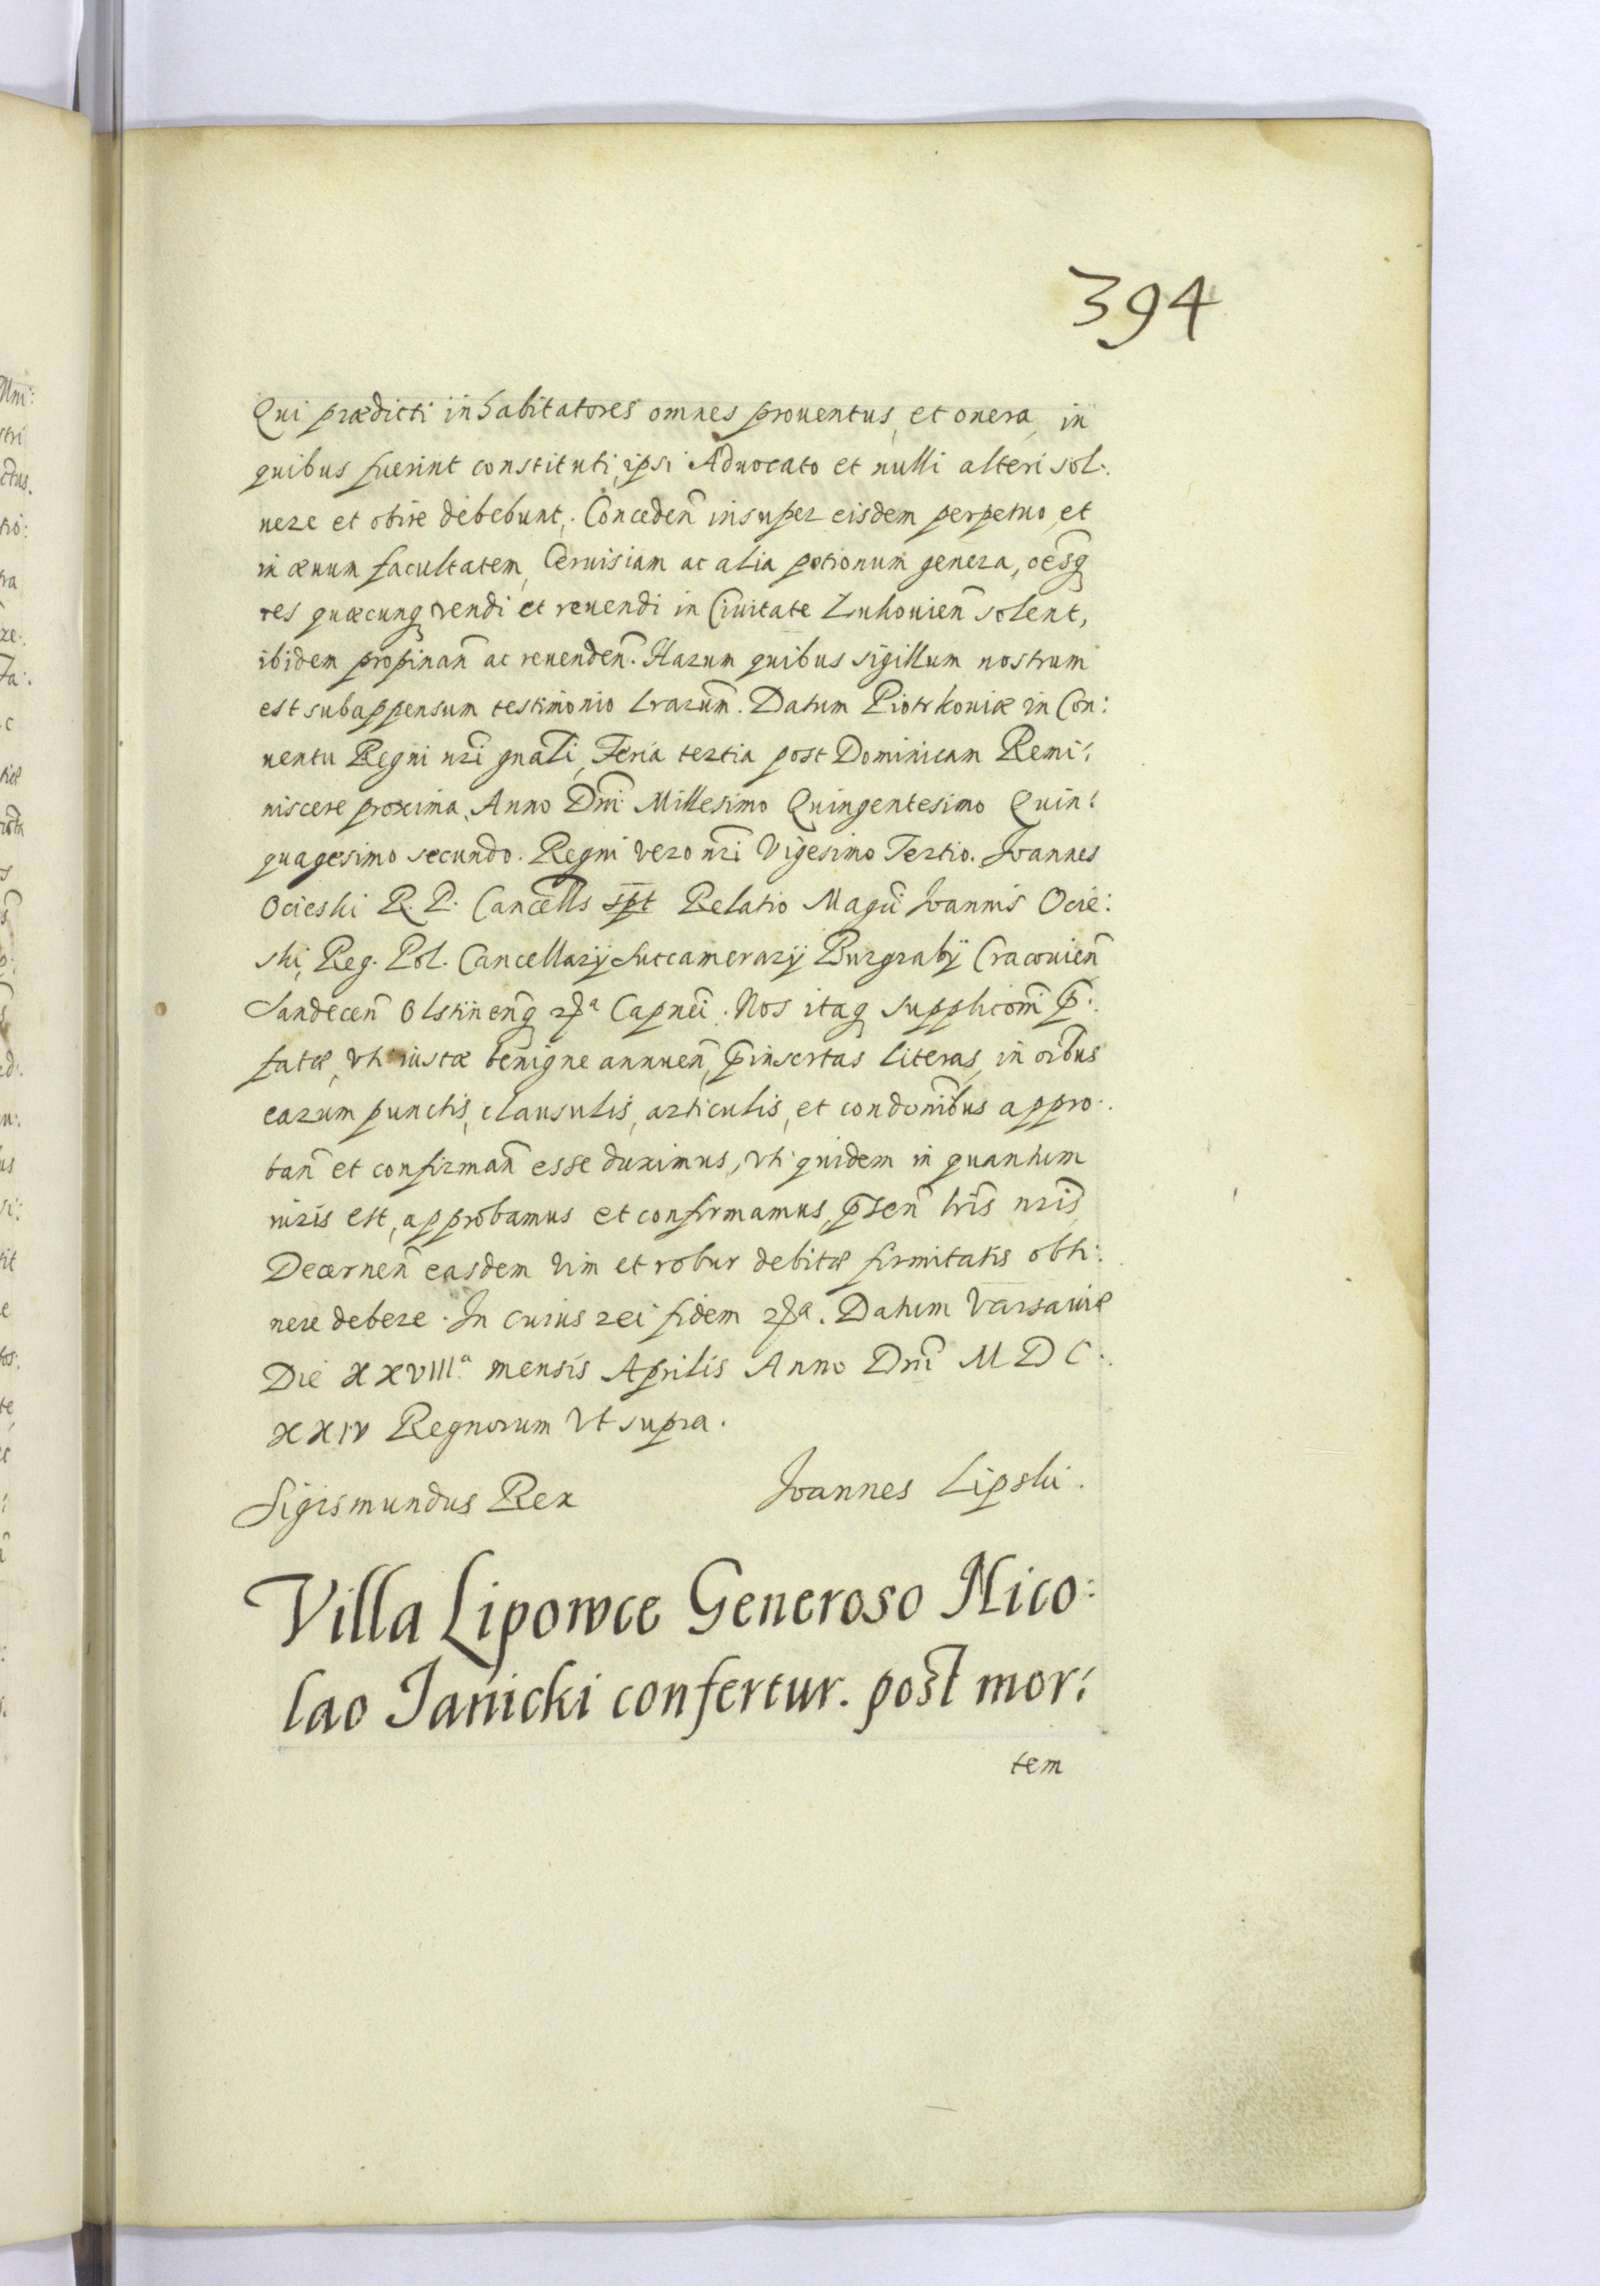 394
Qui prædicti inhabitatores omnes prouentus, et onera, in
quibus fuerint constituti, ipsi Aduocato et nulli alteri sol:
uere et obire debebunt. Conceden̄ insuper eisdem perpetuo, et
in æuum facultatem, Ceruisiam ac alia potionum genera, oēsq
res quæcunq vendi et reuendi in Ciuitate Lukouien̄ solent,
ibidem propinan̄ ac reuenden̄. Harum quibus sigillum nostrum
est subappensum testimonio lrarum̄. Datum Piotrkouiæ in Con:
uentu Regni nr̄i gnāli, Feria tertia post Dominicam Remi:
niscere proxima, Anno Dn̄i Millesimo Quingentesimo Quin:
quagesimo secundo. Regni vero nr̄i Vigesimo Tertio. Joannes
Ocieski R. P. Cancell̄s spt Relatio Magci Joannis Ocie:
ski, Reg. Pol. Cancellarij Succamerarij Burgrabij Cracouien̄
Sandecen̄ Olstinen̄q Capnei. Nos itaq supplicōni p̄:
fatæ, vti iustæ benigne annuen̄, p̄insertas literas, in oībus
earum punctis, clausulis, articulis, et condōnibus appro:
ban̄ et confirman̄ esse duximus, vti quidem in quantum
iuris est, approbamus et confirmamus, p̄sen̄ lrīs nrīs,
Decernen̄ easdem vim et robur debitæ firmitatis obti:
nere debere. In cuius rei fidem. Datum Varsauiæ
Die XXVIIIa mensis Aprilis Anno Dn̄i M D C:
XXIV Regnorum vt supra.
Sigismundus Rex Joannes Lipski.
Villa Lipowce Generoso Nico:
lao Janicki confertur. post mor:
tem